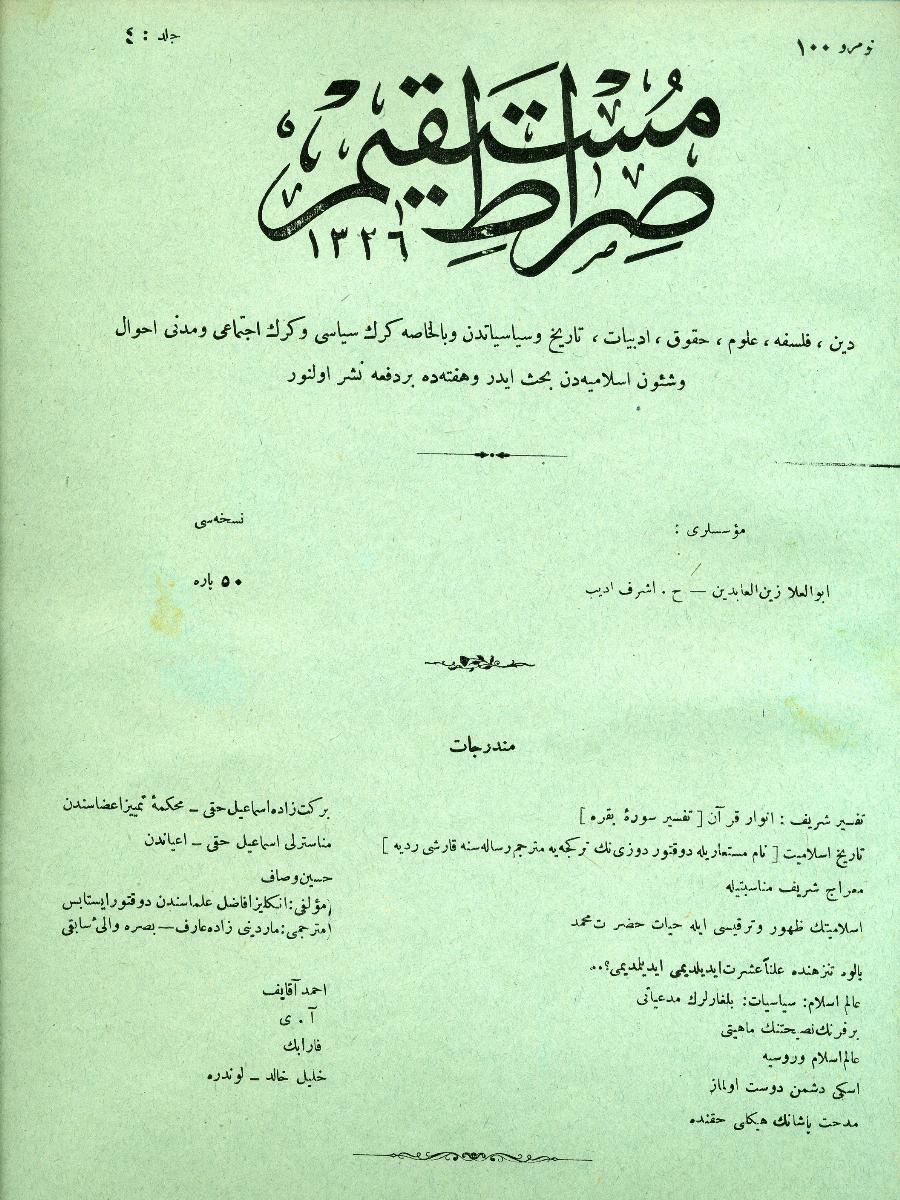 نومرو ١٠٠
جلد : ٤
صراط مستقيم
١٣٢٦
دين ، فلسفه ، علوم ، حقوق ، ادبيات ، تاريخ وسياسياتدن وبالخاصه كرك سياسى وكرك اجتماعى ومدنى احوال
وشئون اسلاميه‌دن بحث ايدر وهفته‌ده بردفعه نشر اولنور
مؤسسلرى :
ابوالعلا زين‌العابدين — ح . اشرف اديب
نسخه‌سى
٥٠ پاره
مندرجات
تفسير شريف : انوار قرآن [ تفسير سورۀ بقره ]
بركت‌زاده اسماعيل حقى – محكمۀ تمييز اعضاسندن
تاريخ اسلاميت [ نام مستعاريله دوقتور دوزى‌نك تركجه‌يه مترجم رساله‌سنه قارشى رديه ]
مناسترلى اسماعيل حقى – اعياندن
معراج شريف مناسبتيله
حسين وصاف
اسلاميتك ظهور وترقيسى ايله حيات حضرت محمد
مؤلفى : انكليز افاضل علماسندن دوقتور ايستابس
مترجمى : ماردينى زاده عارف — بصره والئ سابقى
يالوه تنزهنده علناً عشرت ايديلديمى ايديلمديمى؟..
عالم اسلام : سياسيات : بلغارلرك مدعياتى
احمد آقايف
برفرنك نصيحتنك ماهيتى
آ . ى
عالم اسلام وروسيه
فارابك
اسكى دشمن دوست اولماز
خليل خالد – لوندره
مدحت پاشانك هيكلى حقنده